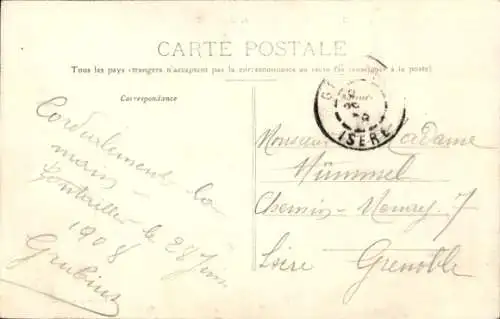 CARTE POSTALE
Tous les pays étrangers n'acceptent pas la correspondance au recto (se renseigner à la poste)
Correspondance
ISÈRE
Cordialements la
main -
Pontailler le 28 Juin
1908
Monsieur Madame
Hümmel
Chemin - 7
Isère Grenoble